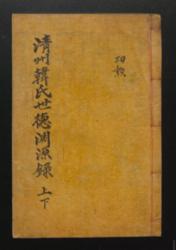 清州韓氏世德淵源錄
上下